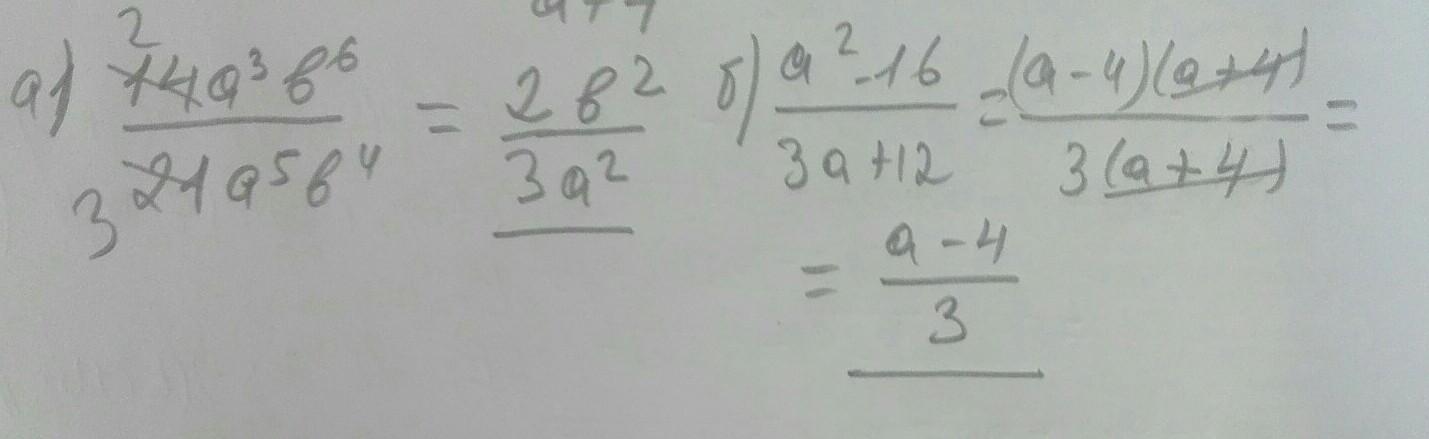 а) 14a³b⁶ / 21a⁵b⁴ = 2b² / 3a² б) a² - 16 / 3a + 12 = (a - 4)(a + 4) / 3(a + 4) =
= a - 4 / 3